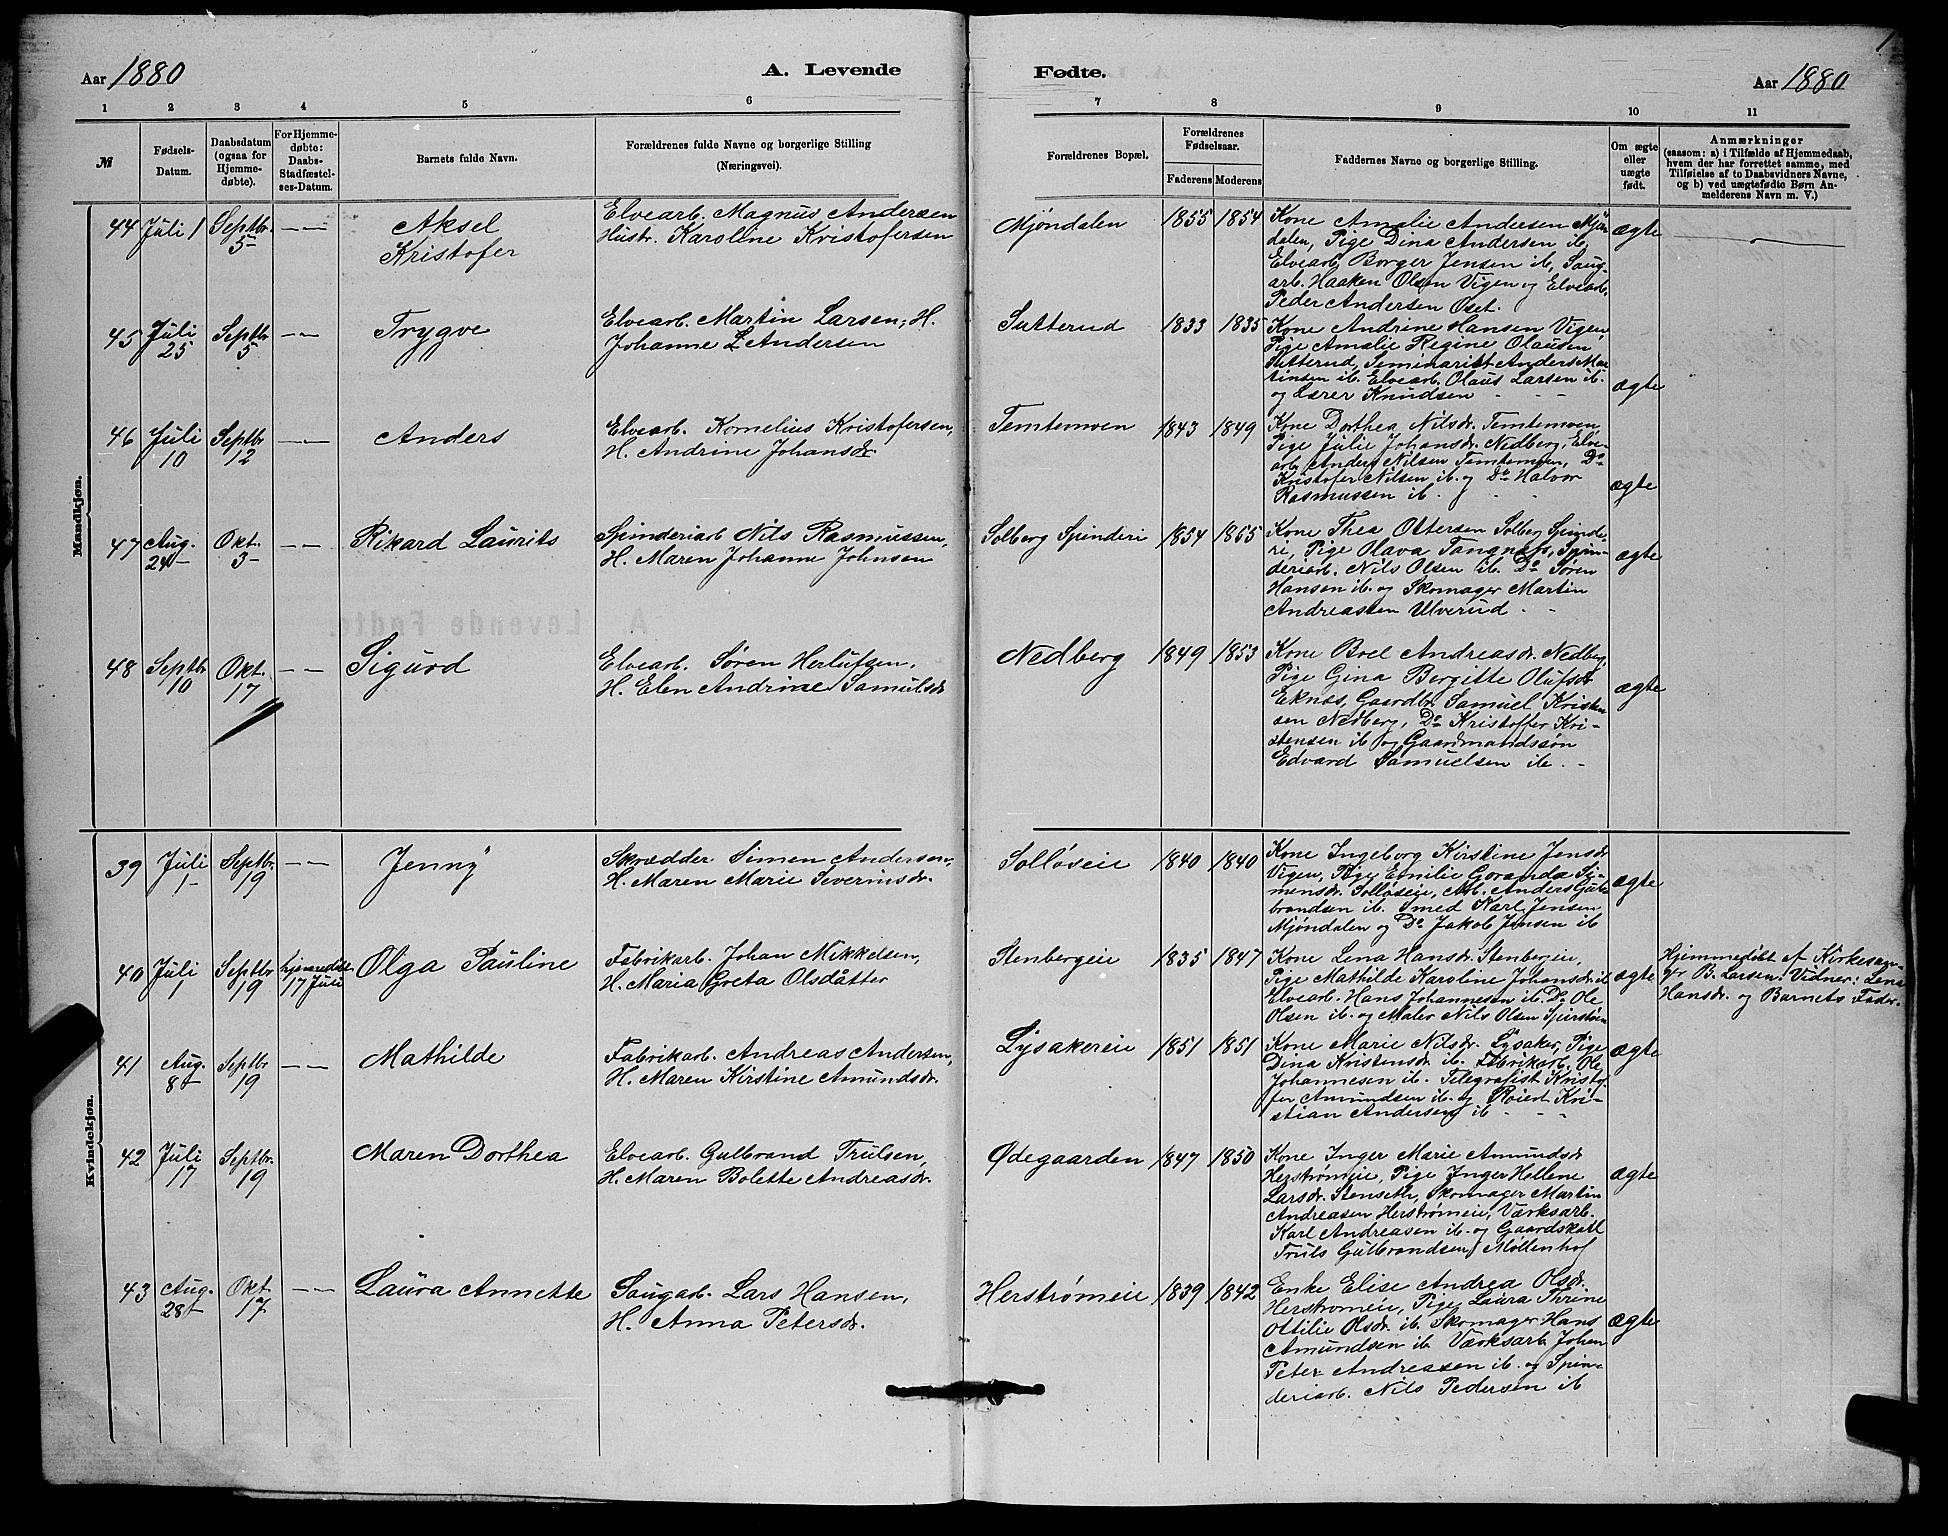 Aar 1880
A. Levende
Fødte.
Aar 1880
1
1 2 3 4 5 6 7 8 9 10 11
№
Fødsels-
Datum.
Daabsdatum
(ogsaa for
Hjemme-
døbte).
For Hjemme-
døbte:
Daabs-
Stadfæstel-
ses-Datum.
Barnets fulde Navn.
Forældrenes fulde Navne og borgerlige Stilling
(Næringsvei).
Forældrenes Bopæl.
Forældrenes
Fødselsaar.
Faderens Moderens
Faddernes Navne og borgerlige Stilling.
Om ægte
eller
uægte
født.
Anmærkninger
(saasom: a) i Tilfælde af Hjemmedaab,
hvem der har forrettet samme, med
Tilføielse af to Daabsvidners Navne,
og b) ved uægtefødte Børn An-
melderens Navn m. V.)
Mandkjøn.
44 Juli 1 Septbr. 5 — —
Aksel
Kristofer
Elvearb. Magnus Andersen
Hustr. Karoline Kristofersen
Mjøndalen 1855 1854
Kone Amalie Andersen Mjøn-
dalen, Pige Dina Andersen ib,
Elvearb. Borger Jensen ib, Saug-
arb. Haaken Olsen Vigen og Elvearb.
Peder Andersen Oset.
ægte
45 Juli 25 Septbr 5 — —
Trygve
Elvearb. Martin Larsen, H.
Johanne L Andersen
Sutterud 1833 1835
Kone Andrine Hansen Vigen,
Pige Amalie Regine Olausen
Sutterud, Seminarist Anders Mar-
tinsen ib. Elvearb. Olaus Larsen ib.
og Lærer Knudsen - - -
ægte
46 Juli 10 Septbr 12 — —
Anders
Elvearb. Kornelius Kristofersen,
H. Andrine Johansdr
Temtemoen 1843 1849
Kone Dorthea Nilsdr. Temtemoen,
Pige Julie Johansdr. Nedberg, Elve-
arb. Anders Nilsen Temtemoen, Do
Kristofer Nilsen ib. og Do Halvor
Rasmussen ib. - -
ægte
47 Aug. 24 Okt. 3 — —
Rikard Laurits
Spinderiarb Nils Rasmussen,
H. Maren Johanne Johnsen
Solberg Spinderi 1854 1855
Kone Thea Ottersen Solberg Spinde-
ri, Pige Olava Tangnæs, Spin-
deriarb. Nils Olsen ib. Do Søren
Hansen ib. og Skomager Martin
Andreassen Ulverud - -
ægte
48 Septbr 10 Okt. 17 — —
Sigurd
Elvearb. Søren Herlufsen,
H. Elen Andrine Samuelsdr
Nedberg 1849 1853
Kone Boel Andreasdr. Nedberg,
Pige Gina Bergitte Olufsdr
Eknæs, Gaardbr. Samuel Kristen-
sen Nedberg, Do Kristoffer Kri-
stensen ib og Gaardmandssøn
Edvard Samuelsen ib. -
ægte
Kvindekjøn.
39 Juli 1 Septbr. 19 — —
Jenny
Skrædder Simen Andersen,
H. Maren Marie Severinsdr.
Solløseie 1840 1840
Kone Ingeborg Kirstine Jensdr
Vigen, Pige Emilie Goranda Si-
mensdr. Solløseie, Arb. Anders Gul-
brandsen ib. Smed Karl Jensen
Mjøndalen og Do Jakob Jensen ib
ægte
40 Juli 1 Septbr 19 hjemmedøbt 17 Juli
Olga Pauline
Fabrikarb. Johan Mikkelsen,
H. Maria Greta Olsdatter
Stenbergeie 1835 1847
Kone Lena Hansdr. Stenbergeie,
Pige Mathilde Karoline Johansdr. ib
Elvearb. Hans Johannesen ib. Do Ole
Olsen ib. og Maler Nils Olsen
ægte
Hjemmedøbt af Kirkesan-
ger B. Larsen. Vidner: Lena
Hansdr. og Barnets Fader.
41 Aug. 8 Septbr 19 — —
Mathilde
Fabrikarb. Andreas Andersen,
H. Maren Kirstine Amundsdr.
Lysakereie 1851 1851
Kone Marie Nilsdr. Lysaker, Pige
Dina Kristensdr. ib. Fabrikarb. Ole
Johannesen ib. Telegrafist Kristo-
fer Amundsen ib. og Kri-
stian Andersen ib - - -
ægte
42 Juli 17 Septbr. 19
Maren Dorthea
Elvearb. Gulbrand Trulsen,
H. Maren Bolette Andreasdr.
Ødegaarden 1847 1850
Kone Inger Marie Amundsdr
Herstrømeie, Pige Inger Hellene
Larsdr. Stenseth, Skomager Martin
Andreasen Herstrømeie, Værksarb.
Karl Andreasen ib. og Gaardskarl
Truls Gulbrandsen, Møllenhof
ægte
43 Aug. 28 Okt 17 — —
Laura Annette
Saugarb. Lars Hansen,
H. Anna Petersdr.
Herstrømeie 1839 1842
Enke Elise Andrea Olsdr.
Herstrømeie, Pige Laura Thrine
Ottilie Olsdr. ib. Skomager Hans
Amundsen ib. Værksarb. Johan
Peter Andreasen ib. og Spin-
deriarb. Nils Pedersen ib
ægte